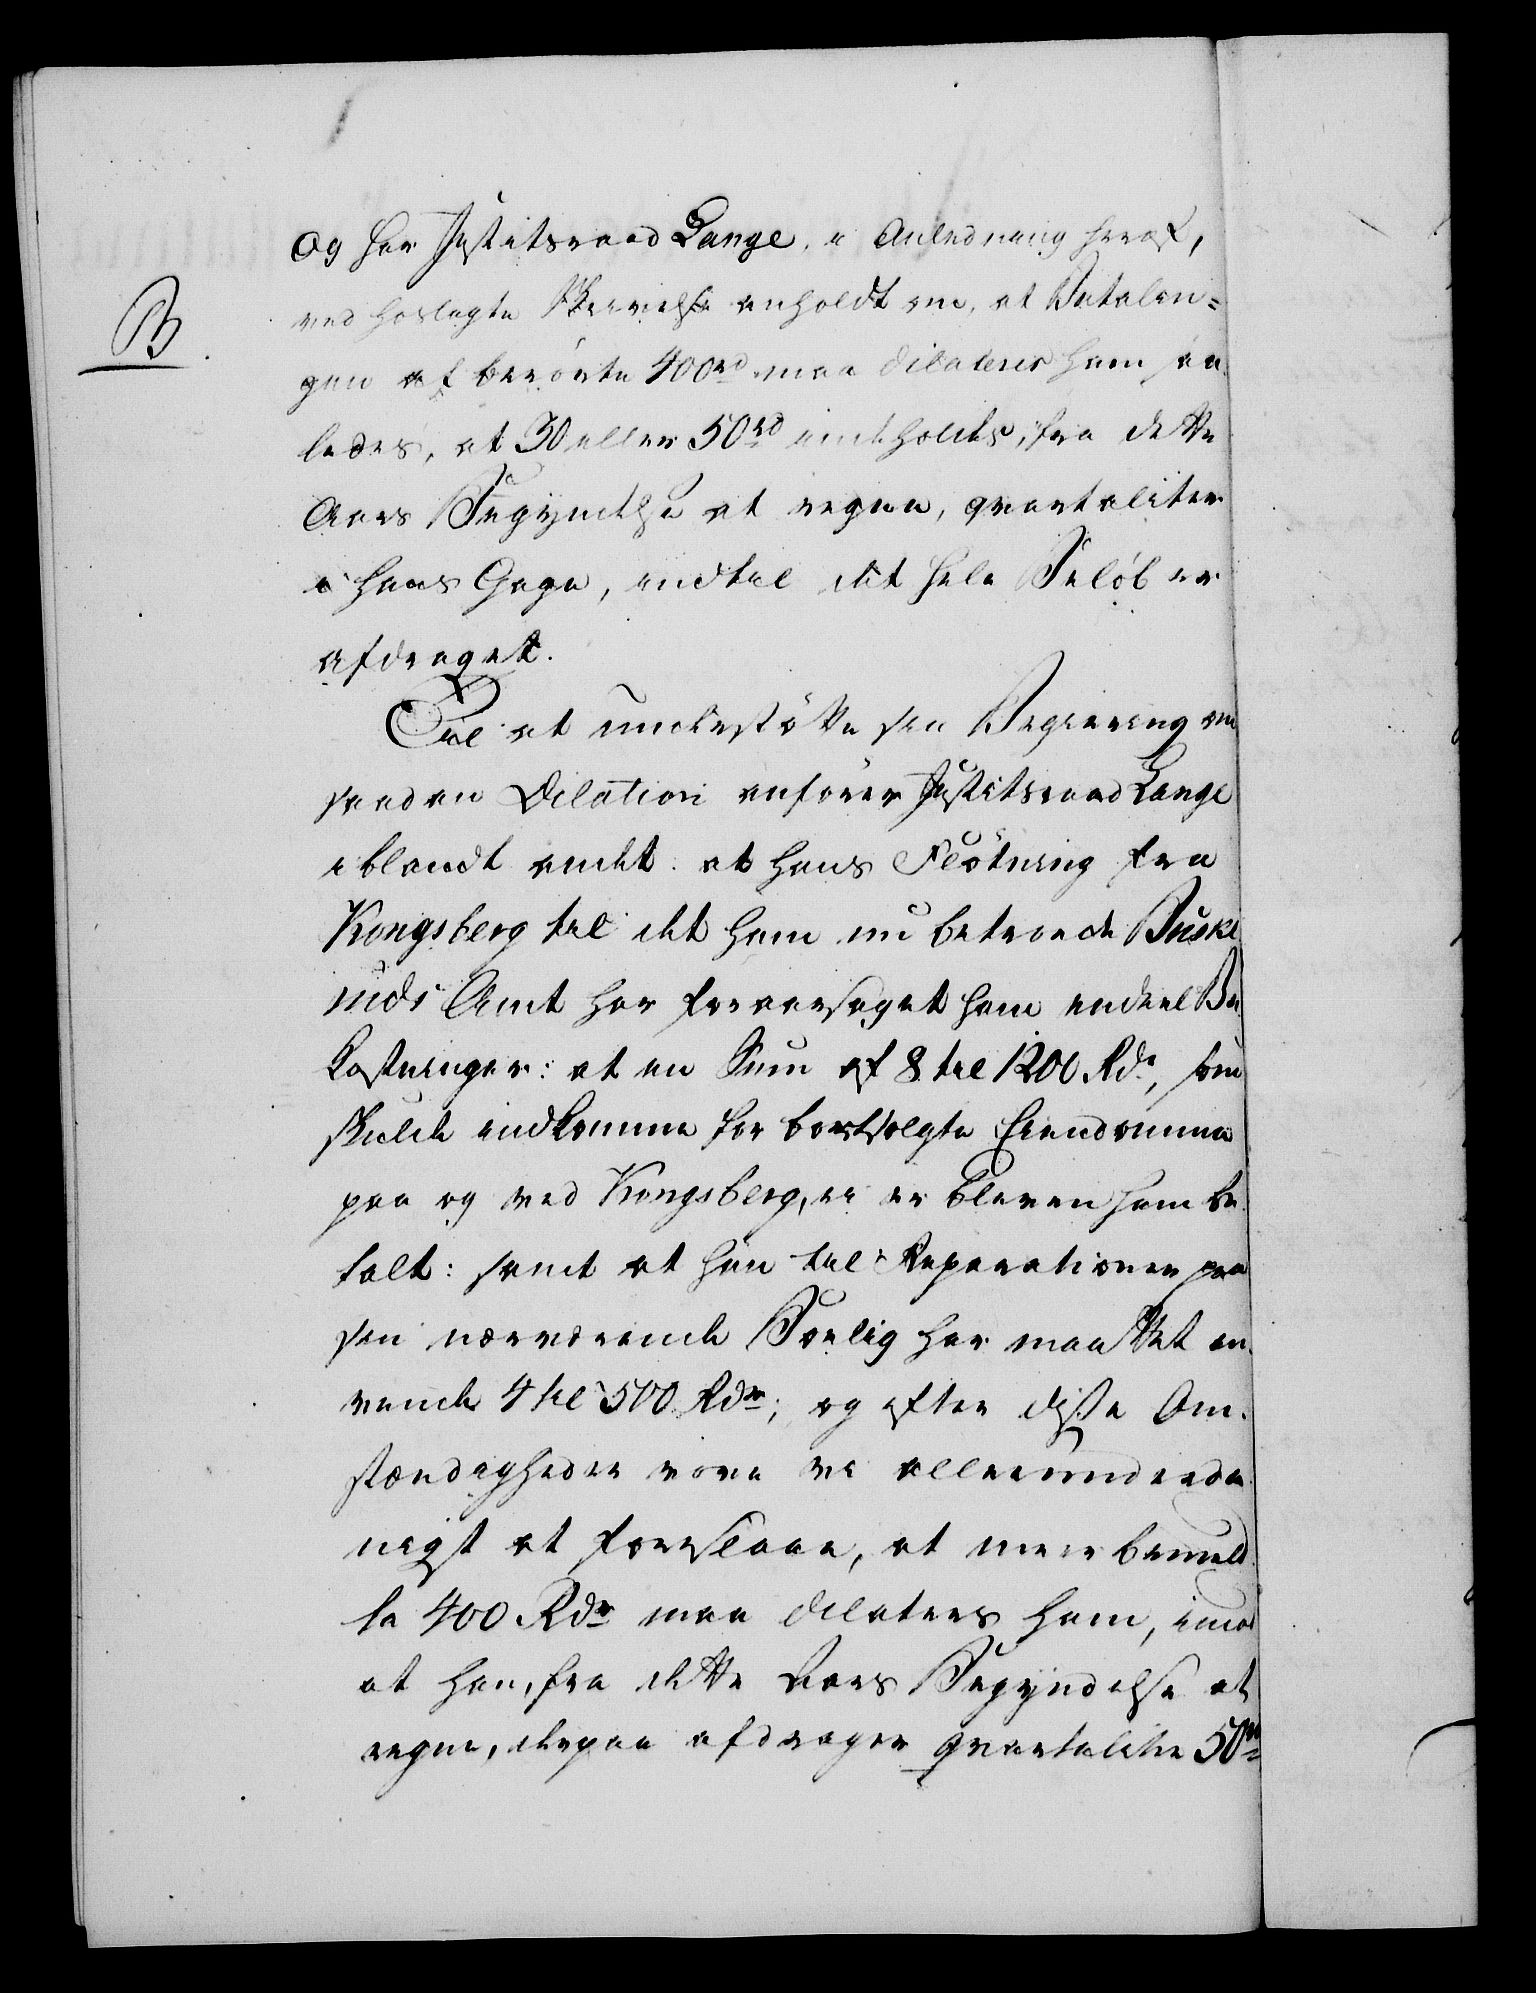 og har Justitsraad Lange, i Anledning heraf,
B
ved hoslagte Skrivelse anholdt om, at Betalin-
gen af berørte 400 rd maa dilateres ham saa
ledes, at 30 eller 50 rd indeholdes, fra dette
Aars Begyndelse at regne, qvartaliter
i hans Gage, indtil det hele Beløb er
afdraget.
Til at understøtte sin Begiering om
saadan Dilation anfører Justitsraad Lange
iblandt andet: at hans Flötning fra
Kongsberg til det ham nu betroede Buske
ruds Amt har foraarsaget ham endeel Be
kostninger: at en Sum af 8 til 1200 Rdr, som
skulde indkomme for bortsolgte Eiendomme
paa og ved Kongsberg, ei er bleven ham be
talt: samt at han til Reparationer paa
sin nærværende Bolig har maattet an
vende 4 til 500 Rdr; og efter disse Om
stændigheder vove vi allerunderda
nigst at foreslaae, at meerbemeld
te 400 Rdr maa dilateres ham, imod
at han, fra dette Aars Begyndelse at
regne, derpaa afdrager qvartaliter 50 rd